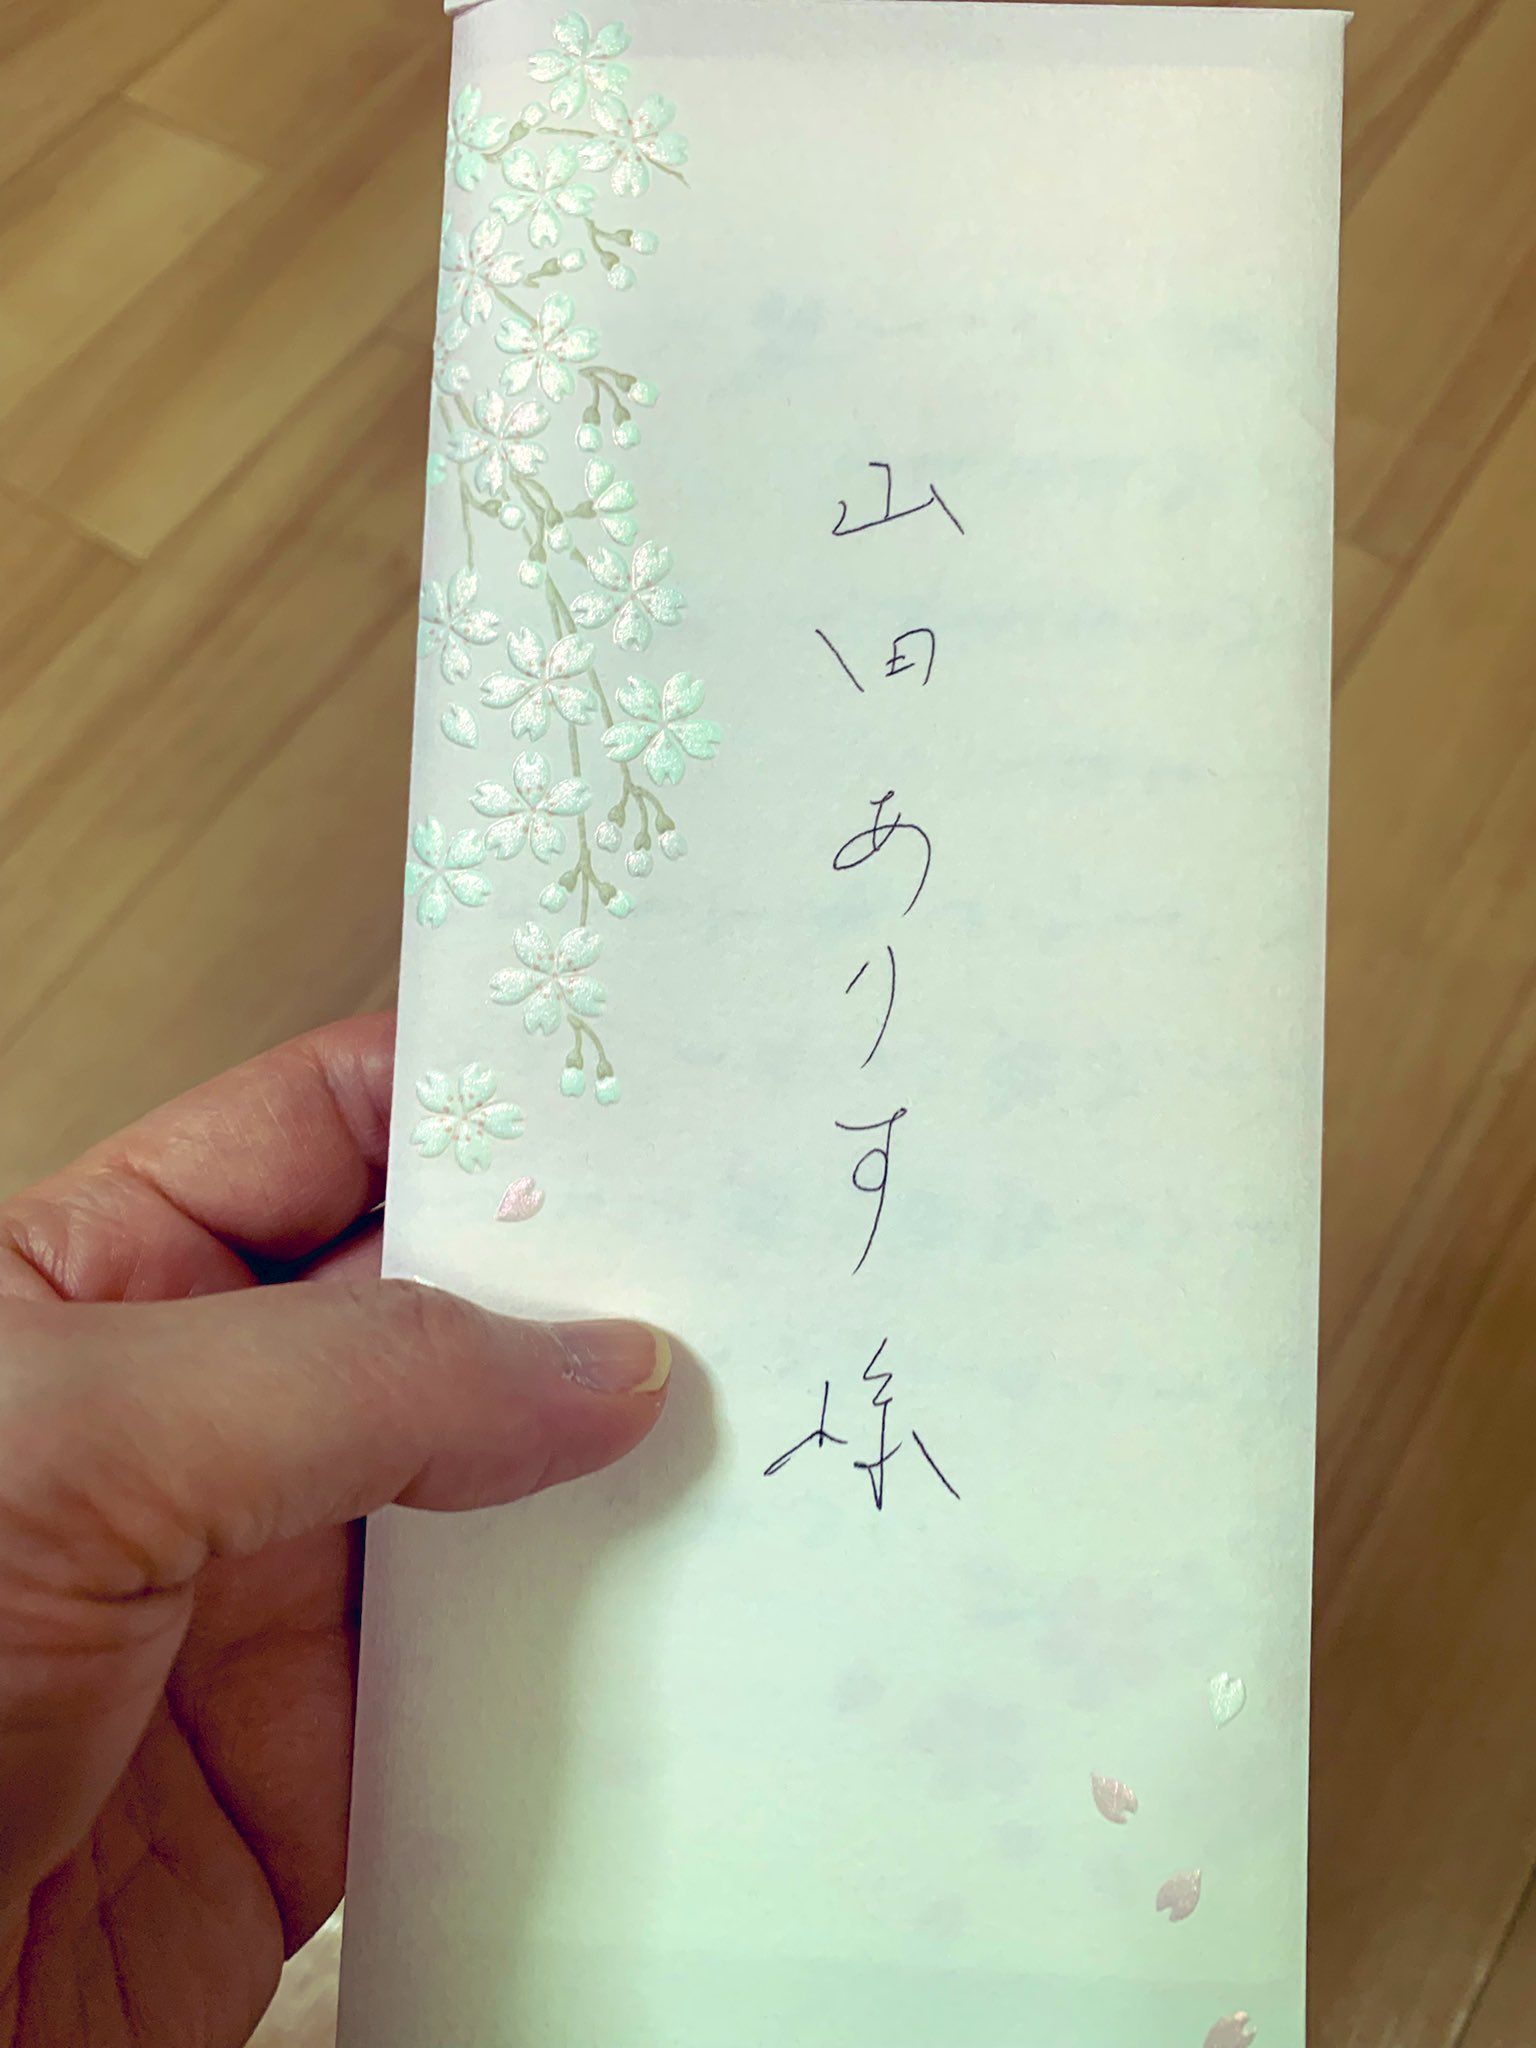 山田ありす様